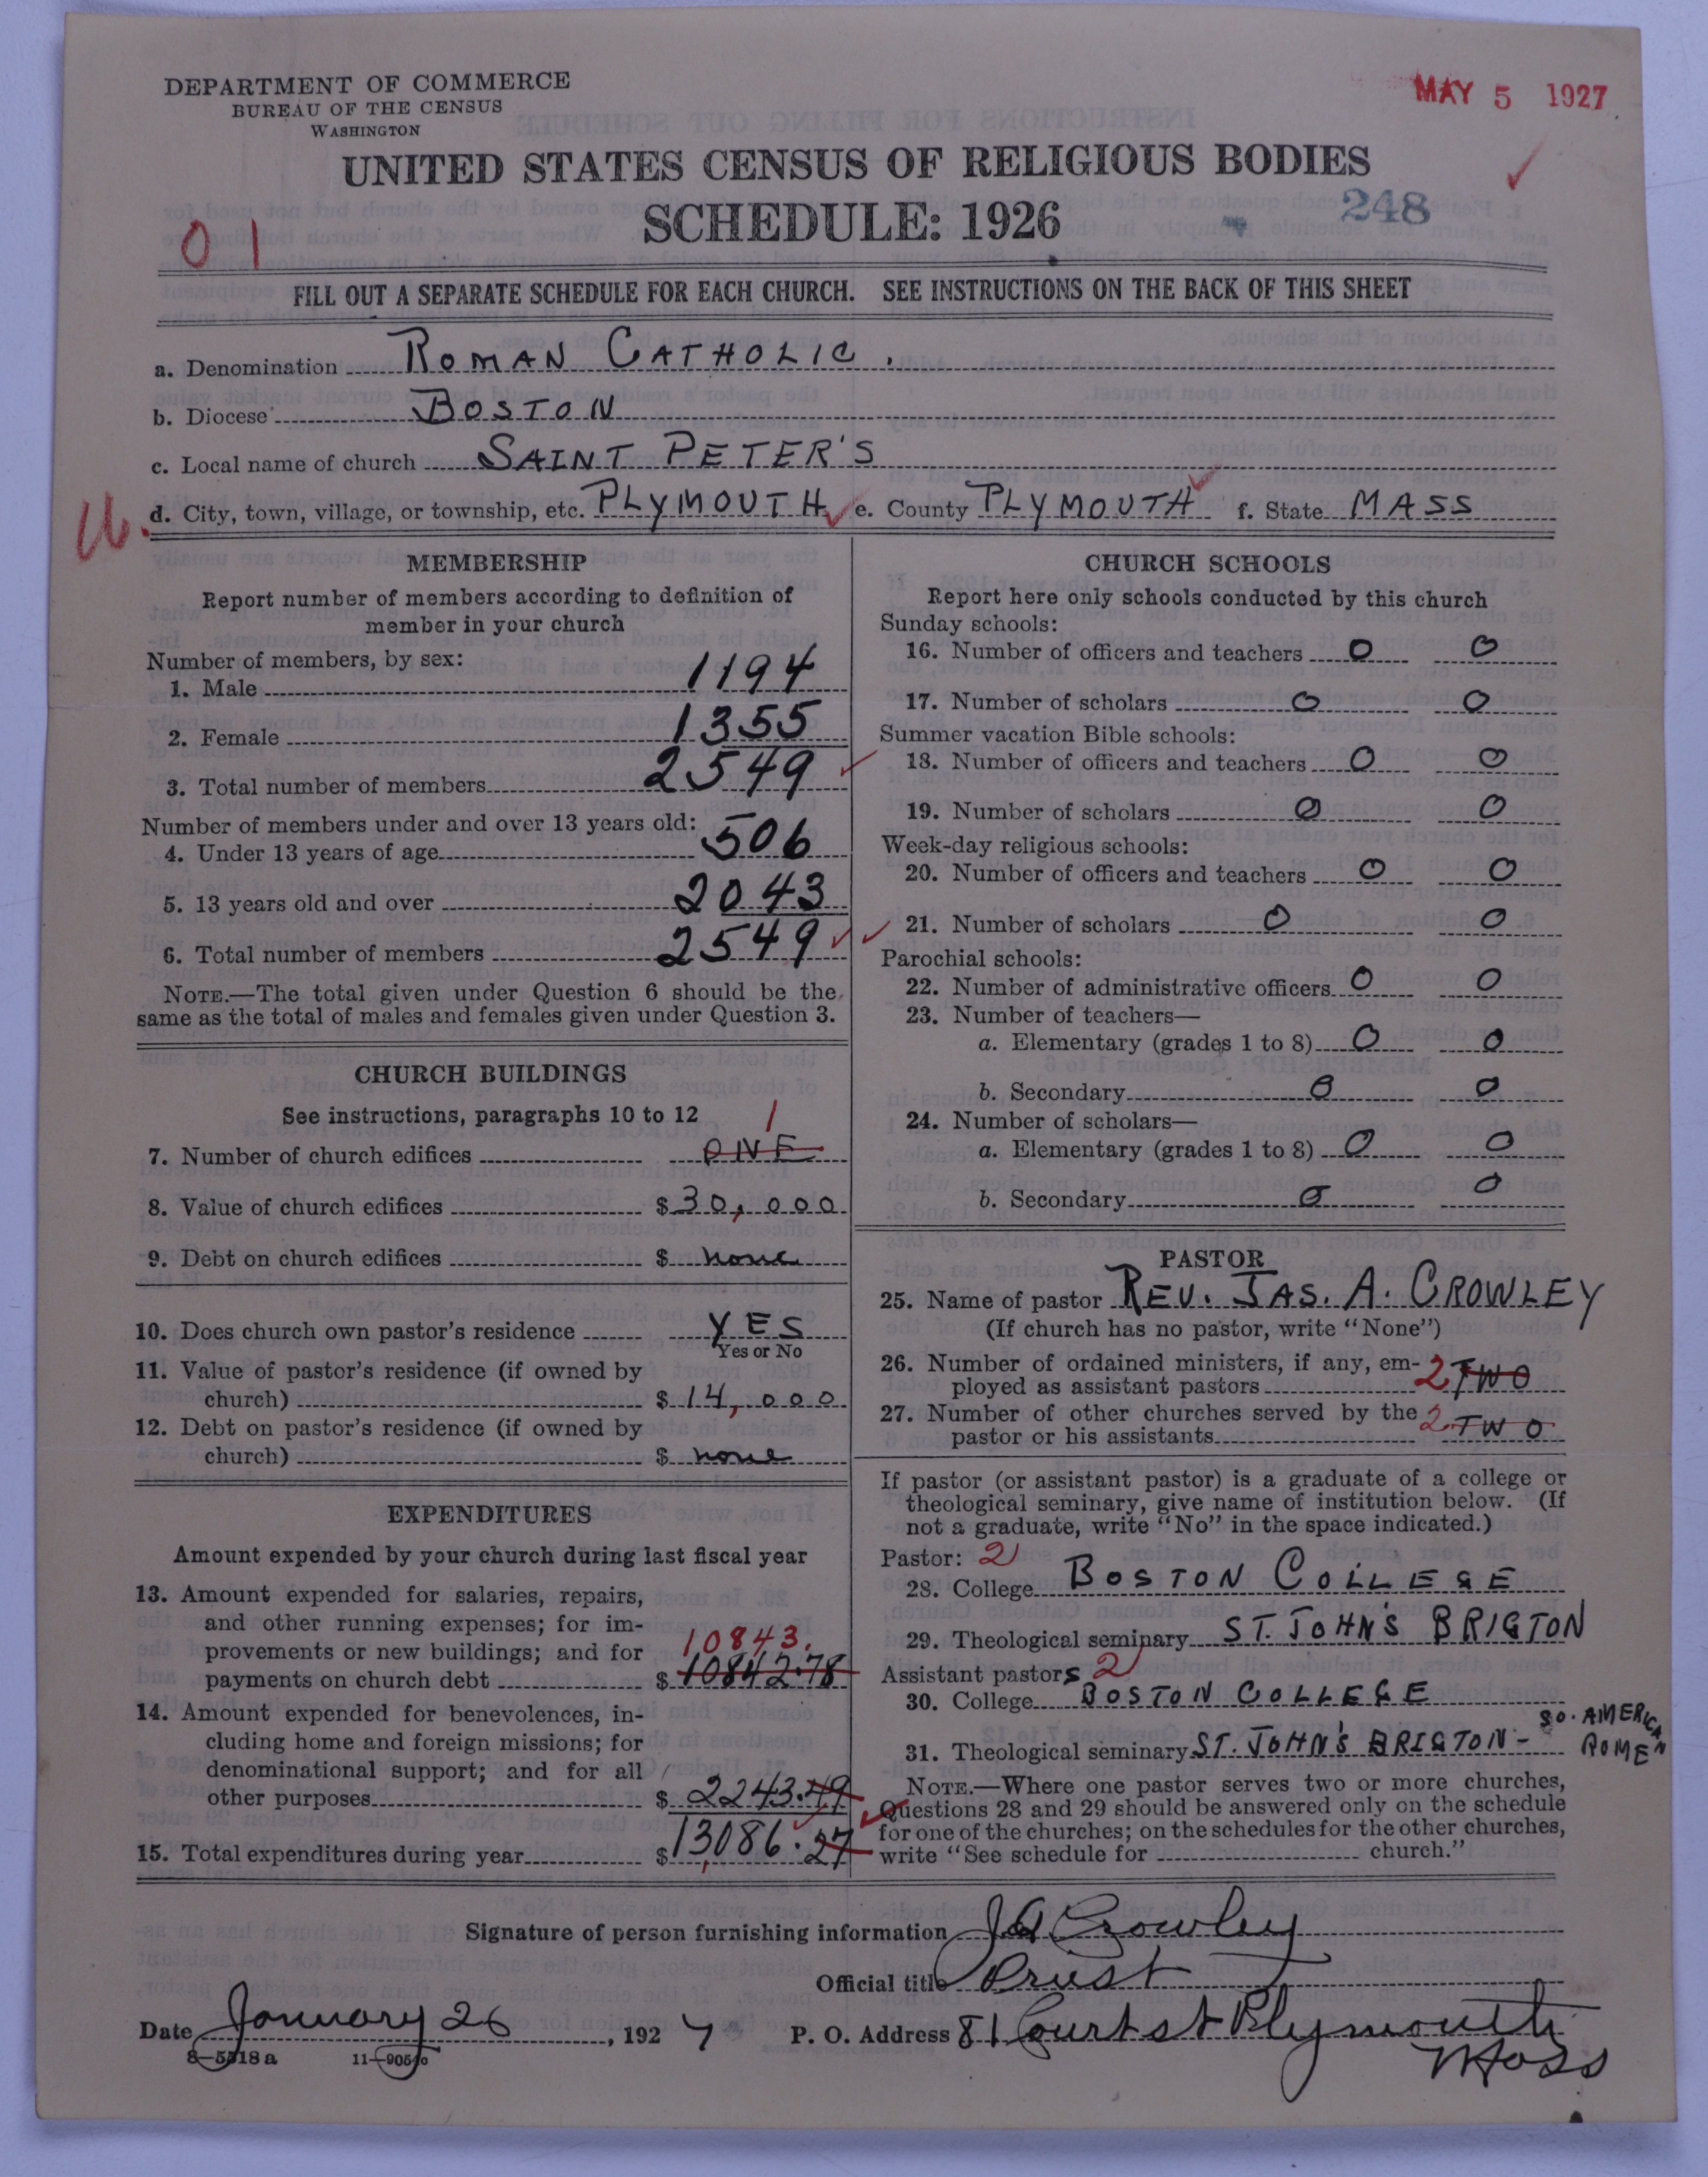 DEPARTMENT OF COMMERCE
BUREAU OF THE CENSUS
WASHINGTON
MAY 5 1927
UNITED STATES CENSUS OF RELIGIOUS BODIES
SCHEDULE: 1926
248
01
FILL OUT A SEPARATE SCHEDULE FOR EACH CHURCH. SEE INSTRUCTIONS ON THE BACK OF THIS SHEET
a. Denomination ROMAN CATHOLIC.
b. Diocese BOSTON
c. Local name of church SAINT PETER'S
d. City, town, village, or township, etc. PLYMOUTH e. County PLYMOUTH f. State MASS
MEMBERSHIP
Report number of members according to definition of
member in your church
Number of members, by sex:
1. Male 1194
2. Female 1355
3. Total number of members 2549
Number of members under and over 13 years old:
4. Under 13 years of age 506
5. 13 years old and over 2043
6. Total number of members 2549
NOTE.—The total given under Question 6 should be the
same as the total of males and females given under Question 3.
CHURCH BUILDINGS
See instructions, paragraphs 10 to 12
1
7. Number of church edifices ONE
8. Value of church edifices $ 30,000
9. Debt on church edifices $ none
10. Does church own pastor's residence YES
Yes or No
11. Value of pastor's residence (if owned by
church) $ 14,000
12. Debt on pastor's residence (if owned by
church) $ none
EXPENDITURES
Amount expended by your church during last fiscal year
13. Amount expended for salaries, repairs,
and other running expenses; for im-
provements or new buildings; and for 10843.
payments on church debt $ 10842.78
14. Amount expended for benevolences, in-
cluding home and foreign missions; for
denominational support; and for all
other purposes $ 2243.49
15. Total expenditures during year $ 13,086.27
CHURCH SCHOOLS
Report here only schools conducted by this church
Sunday schools:
16. Number of officers and teachers 0 0
17. Number of scholars 0 0
Summer vacation Bible schools:
18. Number of officers and teachers 0 0
19. Number of scholars 0 0
Week-day religious schools:
20. Number of officers and teachers 0 0
21. Number of scholars 0 0
Parochial schools:
22. Number of administrative officers 0 0
23. Number of teachers—
a. Elementary (grades 1 to 8) 0 0
b. Secondary 0 0
24. Number of scholars—
a. Elementary (grades 1 to 8) 0 0
b. Secondary 0 0
PASTOR
25. Name of pastor REV. JAS. A. CROWLEY
(If church has no pastor, write "None")
26. Number of ordained ministers, if any, em-
ployed as assistant pastors 2 TWO
27. Number of other churches served by the
pastor or his assistants 2 TWO
If pastor (or assistant pastor) is a graduate of a college or
theological seminary, give name of institution below. (If
not a graduate, write "No" in the space indicated.)
Pastor: 2
28. College BOSTON COLLEGE
29. Theological seminary ST. JOHN'S BRIGTON
Assistant pastors 2
30. College BOSTON COLLEGE
31. Theological seminary ST. JOHN'S BRIGTON - SO. AMERICAN
ROME
NOTE.—Where one pastor serves two or more churches,
Questions 28 and 29 should be answered only on the schedule
for one of the churches; on the schedules for the other churches,
write "See schedule for church."
Signature of person furnishing information J A Crowley
Official title Priest
Date January 26, 1927 P. O. Address 81 Court st Plymouth
Mass
8—5518a